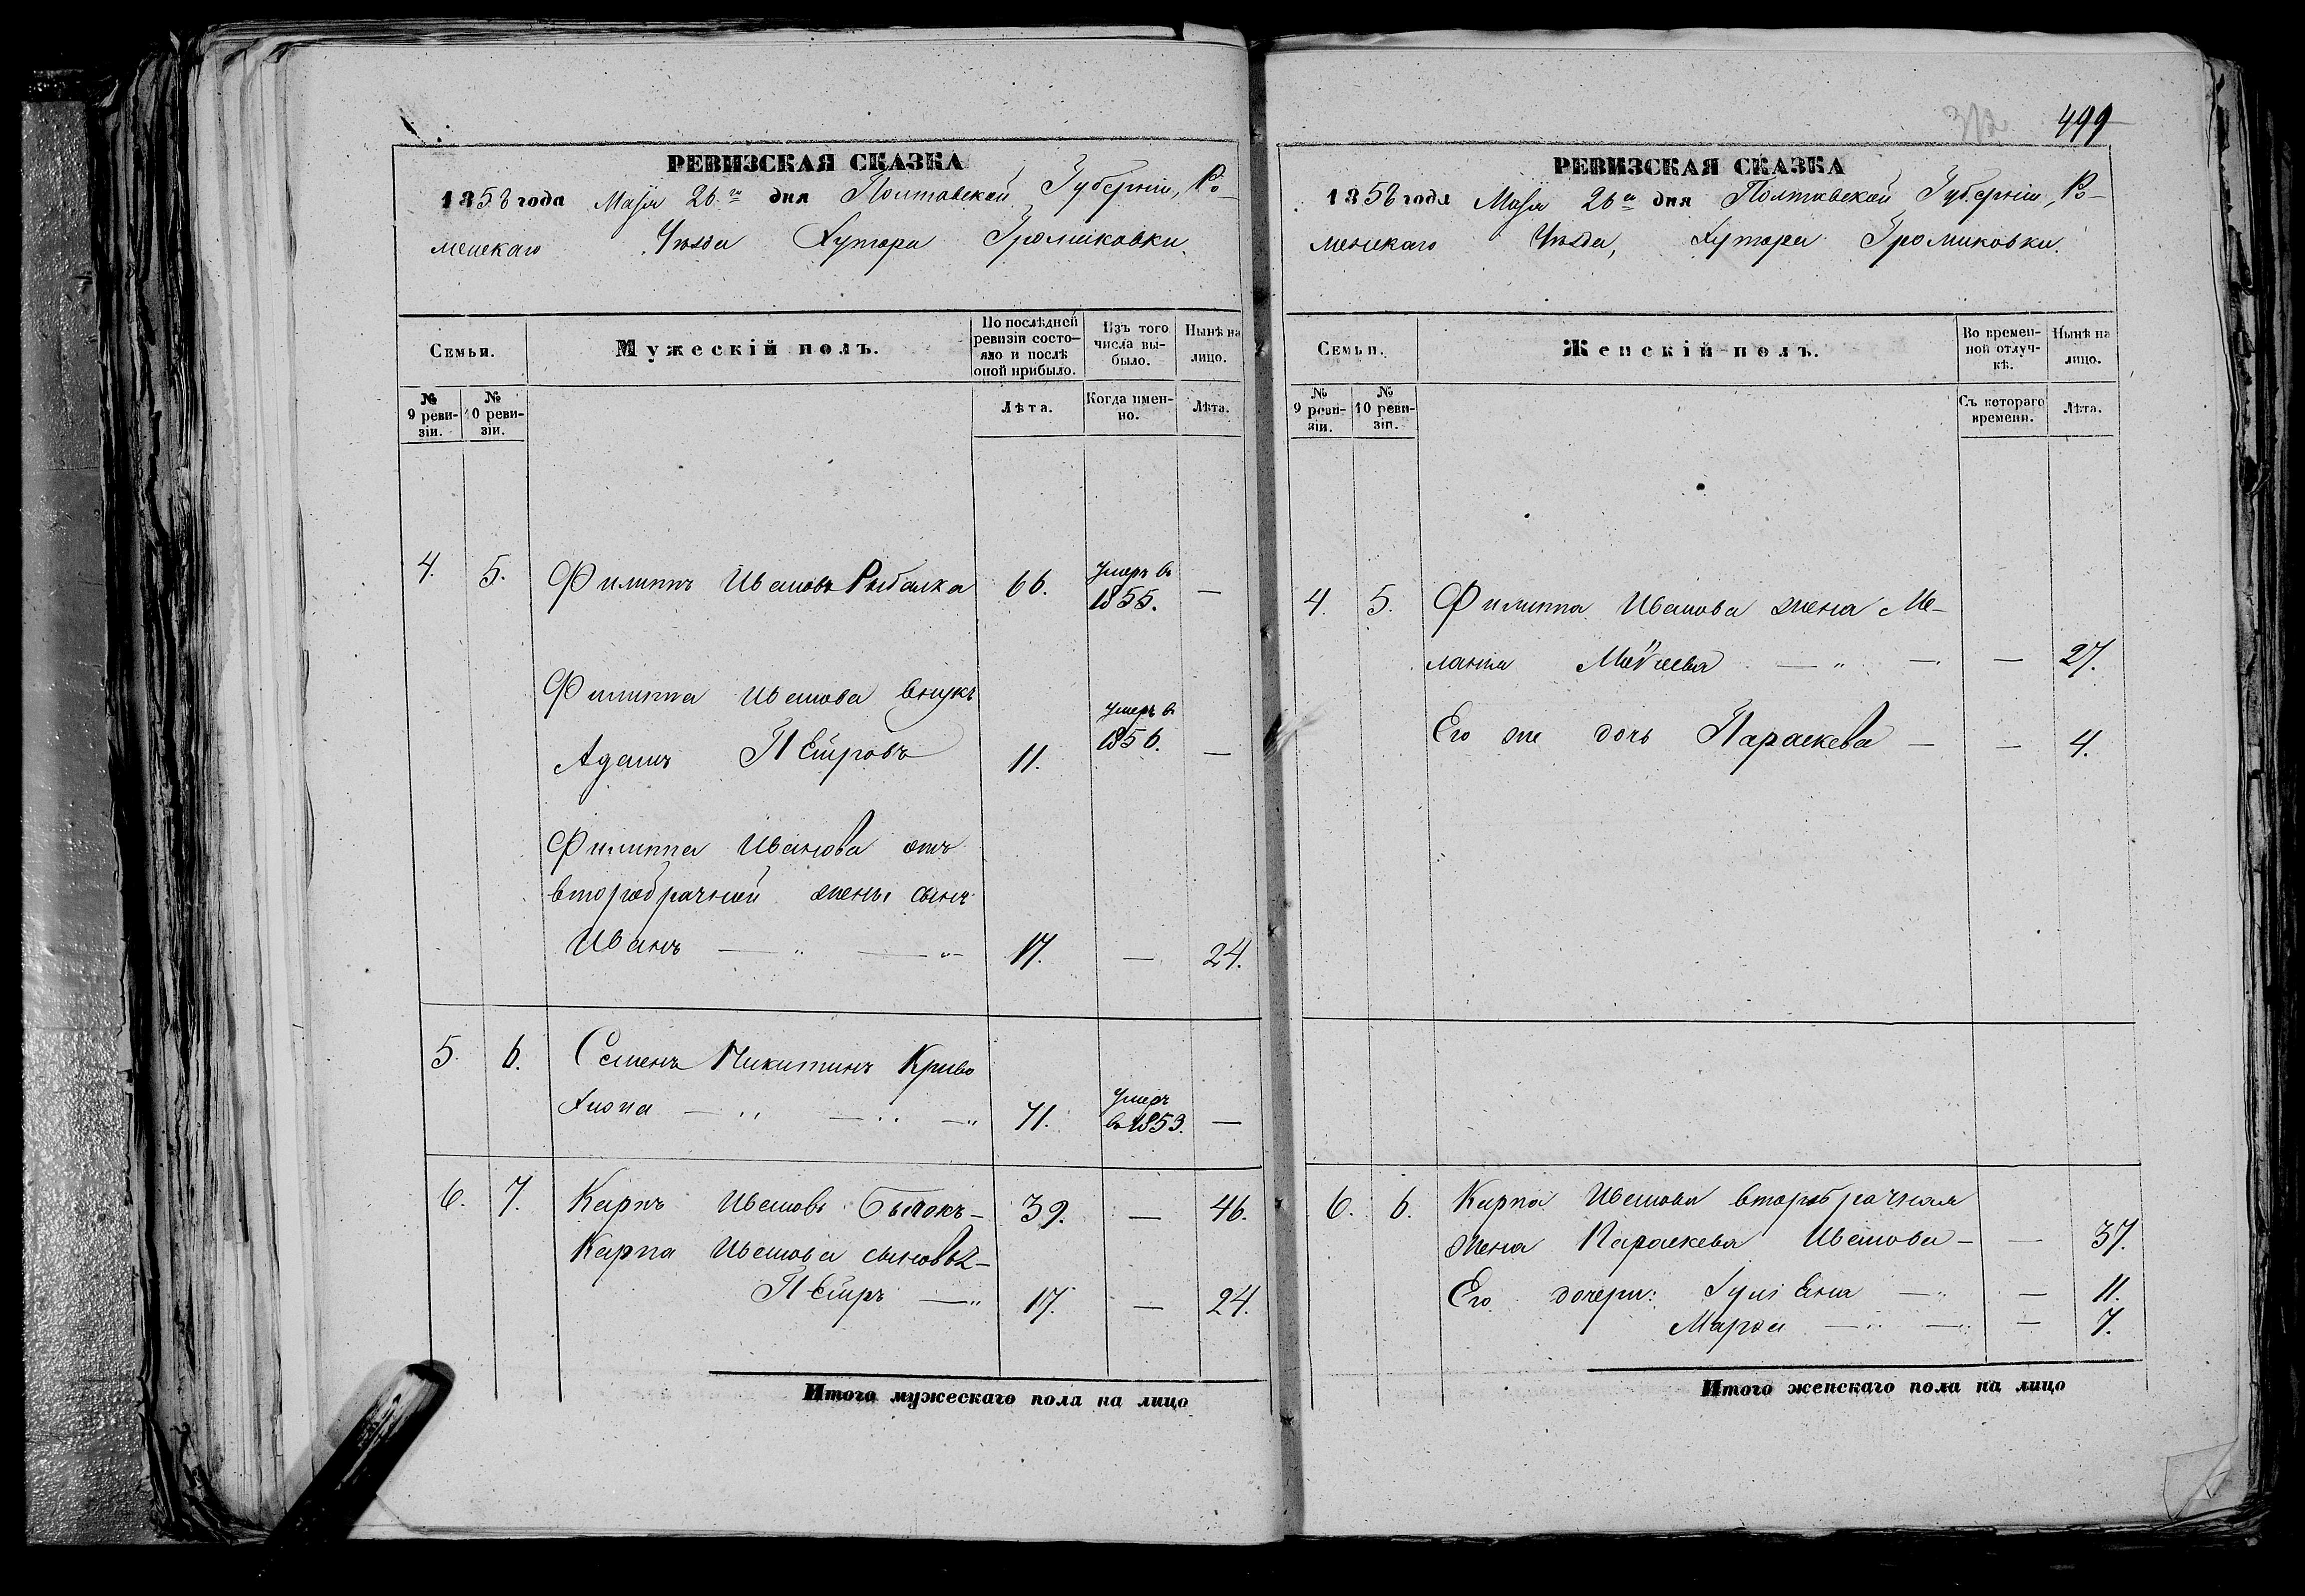 РЕВИЗСКАЯ СКАЗКА
1858 года Маія 26го дня Полтавской Губерніи, Ро-
менскаго Уѣзда Хутора Громиковки.
Семьи.
Мужескій полъ.
По послѣдней ревизіи состояло и послѣ оной прибыло.
Изъ того числа выбыло.
Нынѣ на лицо.
№ 9 ревизіи.
№ 10 ревизіи.
Лѣта.
Когда именно.
Лѣта.
4. 5. Филиппъ Ивановъ Рыбалка 66. Умеръ въ 1855. —
Филиппа Иванова внукъ
Адамъ Петровъ 11. Умеръ въ 1856. —
Филиппа Иванова отъ
второбрачной жены сынъ
Иванъ — " — " — 17. — 24.
5. 6. Семенъ Никитинъ Криво
хиопа — " — " — " 71. Умеръ въ 1853. —
6. 7. Карпъ Ивановъ Бычокъ — 39. — 46.
Карпа Иванова сыновья —
Петръ — " 17. — 24.
Итого мужескаго пола на лицо
499
РЕВИЗСКАЯ СКАЗКА
1858 года Маія 26го дня Полтавской Губерніи, Ро-
менскаго Уѣзда, Хутора Громиковки.
Семьи.
Женскій полъ.
Во временной отлучкѣ.
Нынѣ на лицо.
№ 9 ревизіи.
№ 10 ревизіи.
Съ котораго времени.
Лѣта.
4. 5. Филиппа Иванова жена Ме-
ланія — " — — 27.
Его же дочь Параскева — — 4.
6. 6. Карпа Иванова второбрачная
жена Параскева Иванова — — 37.
Его дочери: — " — 11.
Марфа — " — " — 7.
Итого женскаго пола на лицо